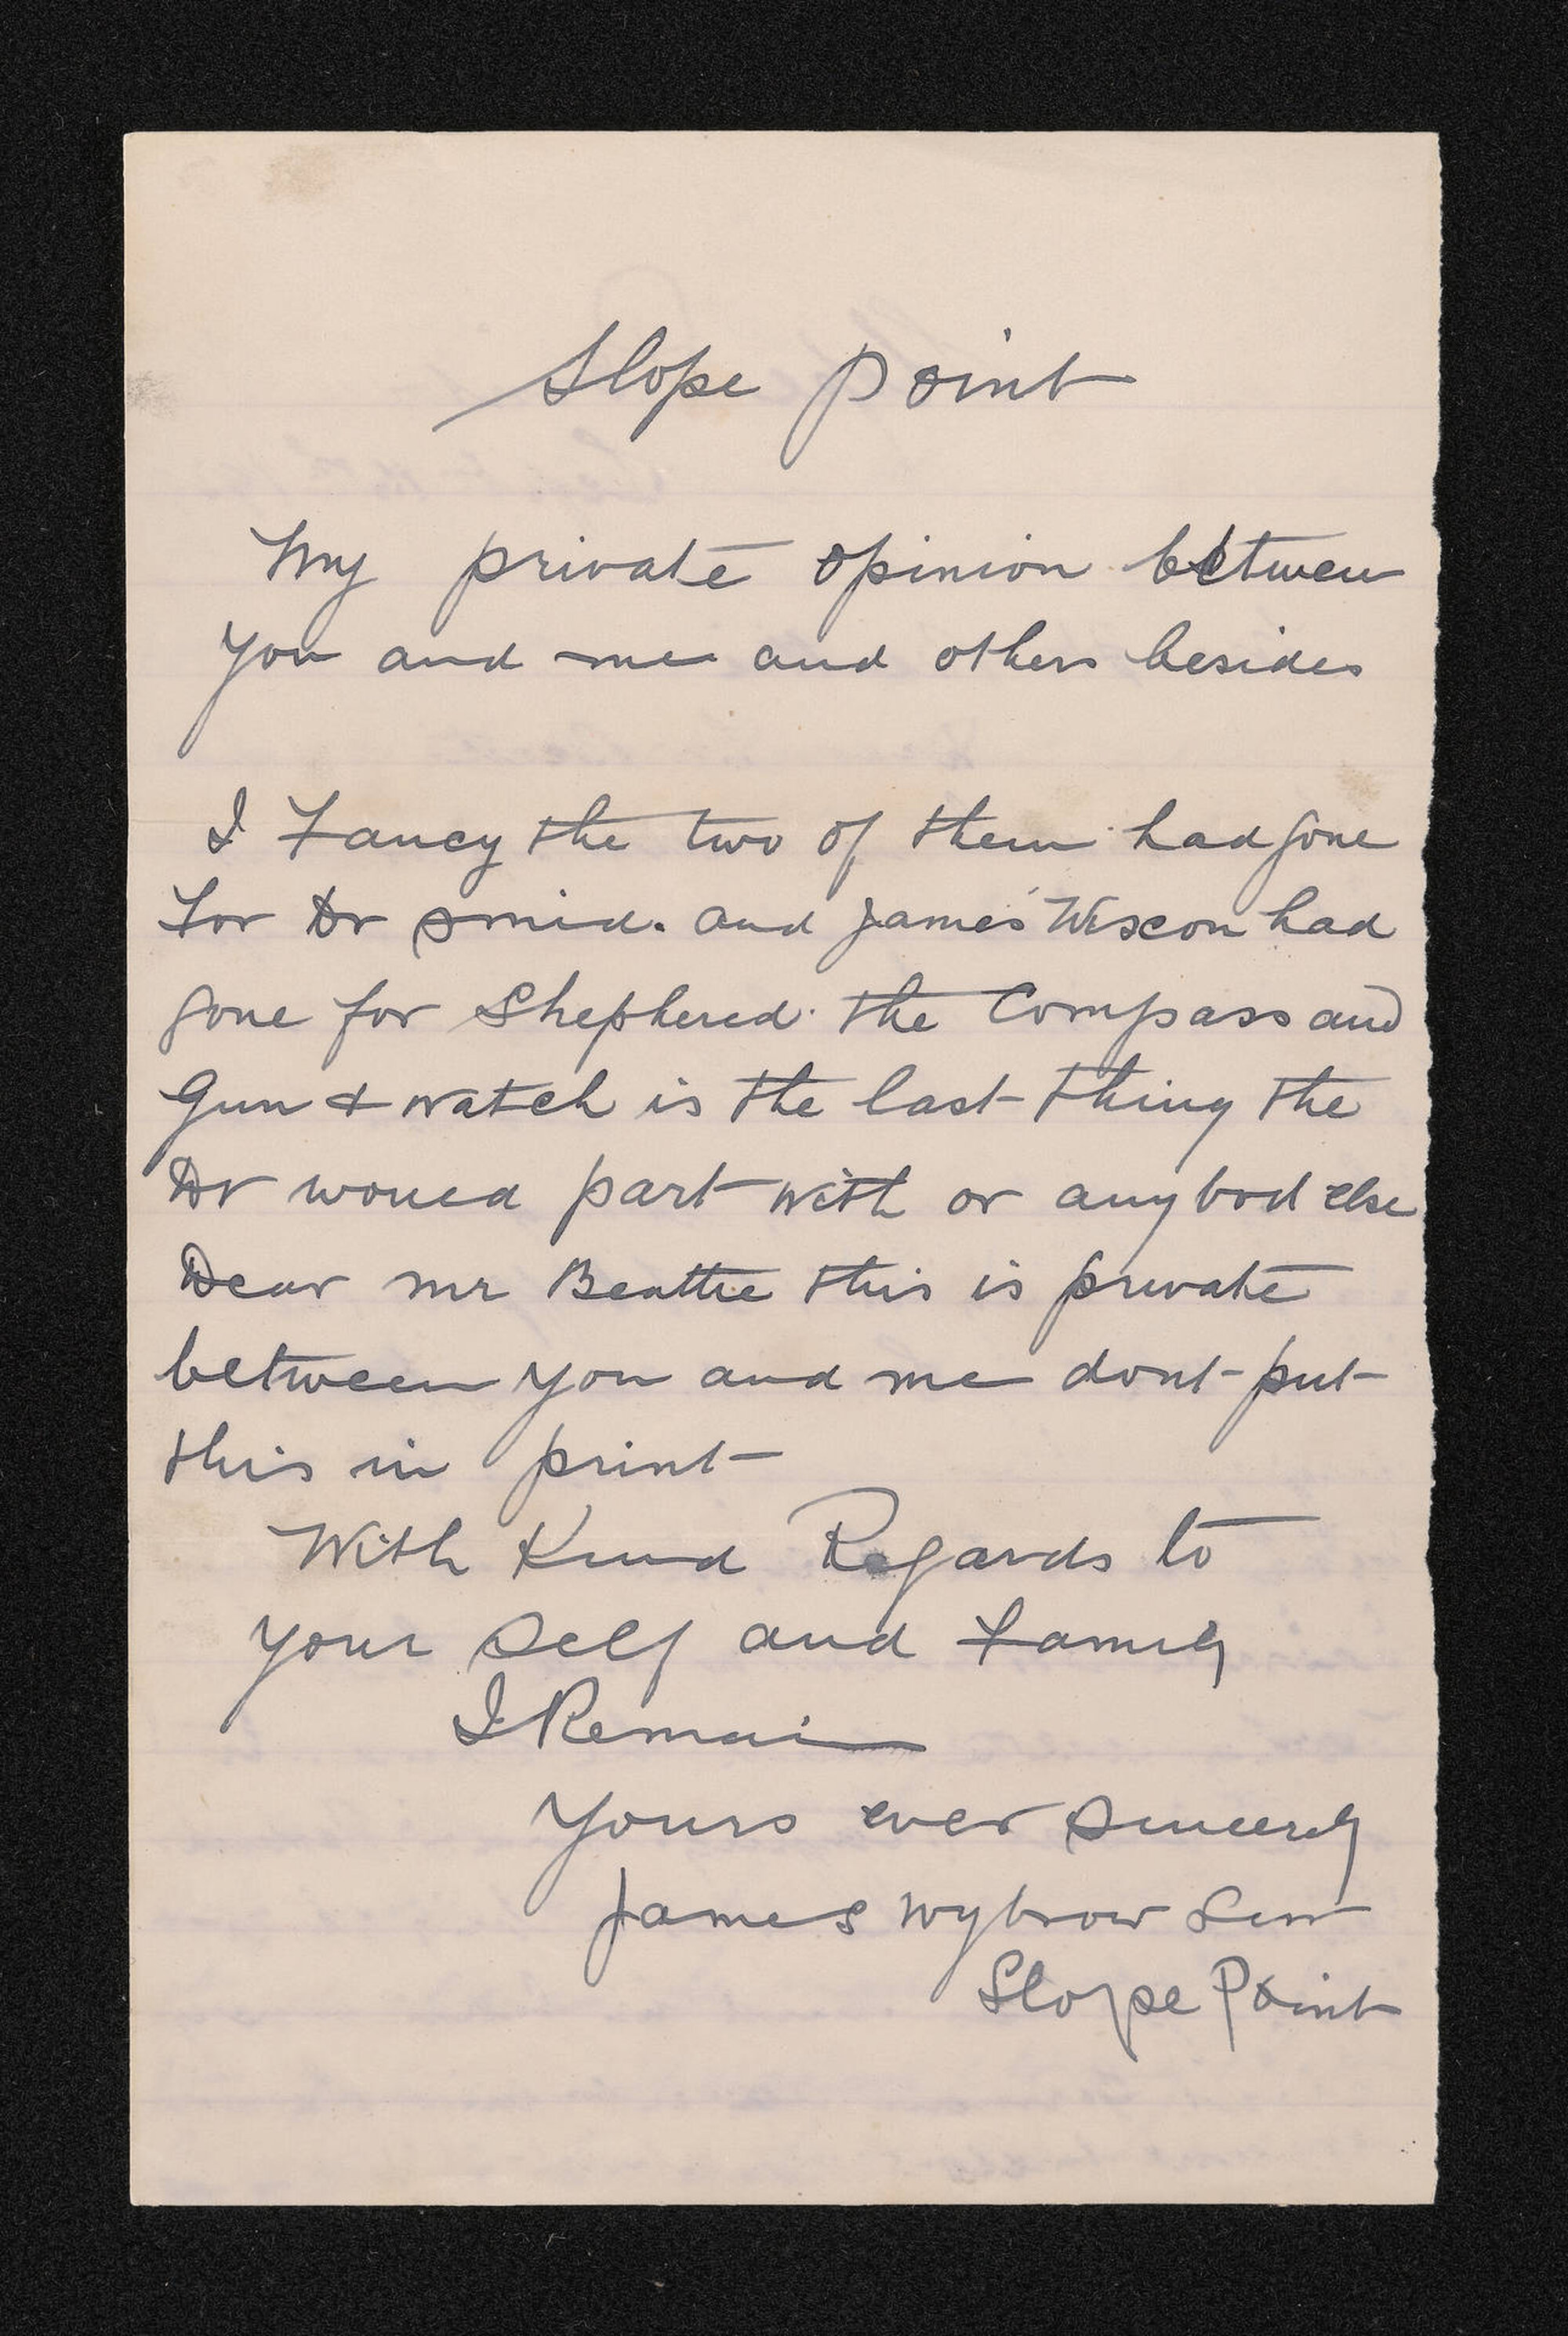 Slope Point
My private opinion between
you and me and others besides
I Fancy the two of them had gone
For Dr Smid. and James Wiscon had
gone for Shephered. the Compass and
Gun & watch is the last thing the
Dr woued part with or anybod else
Dear mr Beattie this is private
between you and me dont put
this in print
With Kind Regards to
your Self and Famiy
I Remain
yours ever Sincerly
James Wybrow Senr
Slope Point